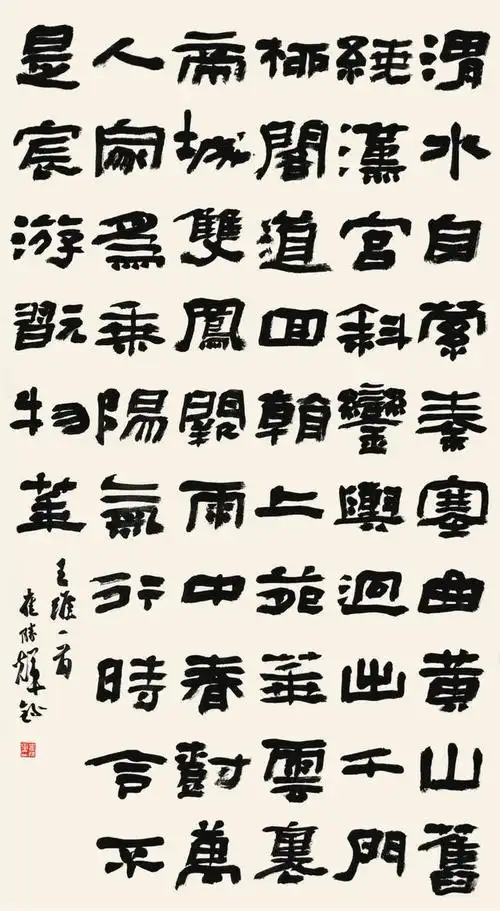 渭水自縈秦塞曲黃山舊
繞漢宮斜鑾輿迥出千門
柳閣道回看上苑華雲裏
帝城雙鳳闕雨中春樹萬
人家爲乘陽氣行時令不
是宸游翫物華
王維一首
崔勝輝